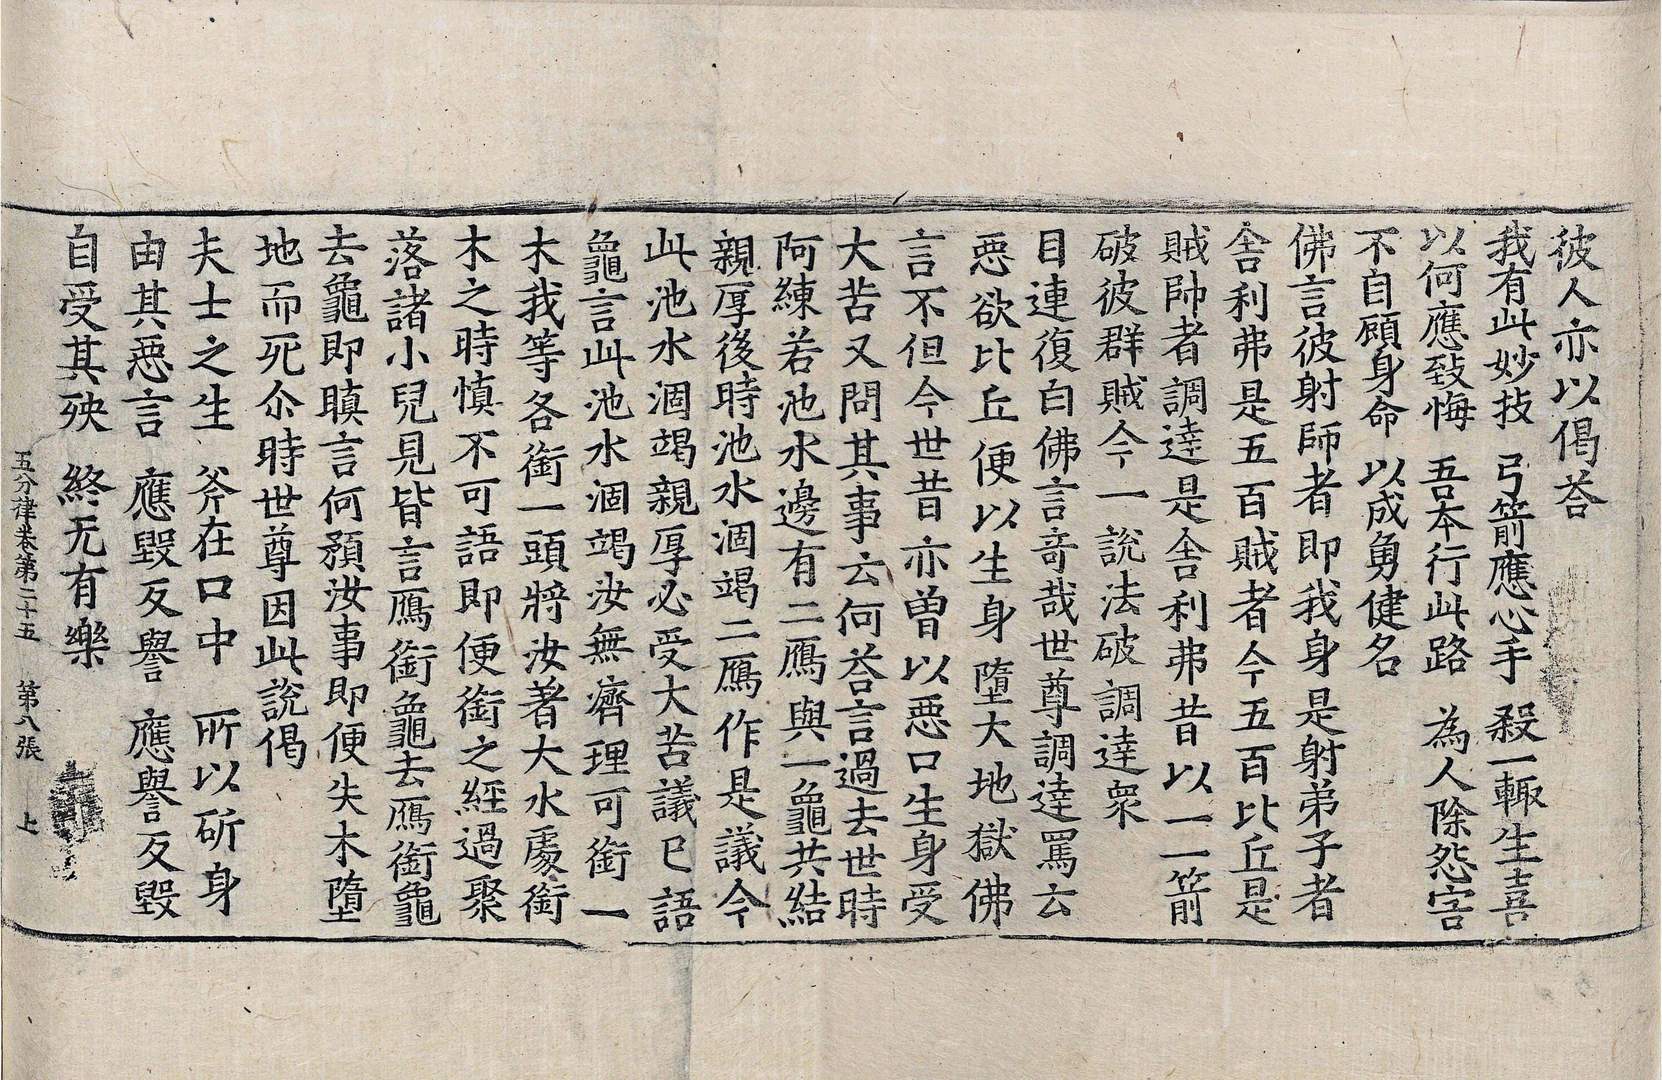 彼人亦以偈荅
我有此妙技　弓箭應心手　殺一輙生喜
以何應致悔　吾本行此路　為人除怨害
不自顧身命　以成勇健名
佛言彼射師者即我身是射弟子者
舍利弗是五百賊者今五百比丘是
賊帥者調達是舍利弗昔以一一箭
破彼群賊今一說法破調達衆
目連復白佛言竒哉世尊調達罵云
惡欲比丘便以生身墮大地獄佛
言不但今世昔亦曽以惡口生身受
大苦又問其事云何荅言過去世時
阿練若池水邊有二鴈與一龜共結
親厚後時池水涸竭二鴈作是議今
此池水涸竭親厚必受大苦議已語
龜言此池水涸竭汝無濟理可銜一
木我等各銜一頭將汝著大水處銜
木之時慎不可語即便銜之經過聚
落諸小兒見皆言鴈銜龜去鴈銜龜
去龜即瞋言何預汝事即便失木墮
地而死尒時世尊因此說偈
夫士之生　斧在口中　所以斫身
由其惡言　應毀反譽　應譽反毀
自受其殃　終无有樂
五分律卷第二十五　第八張　上